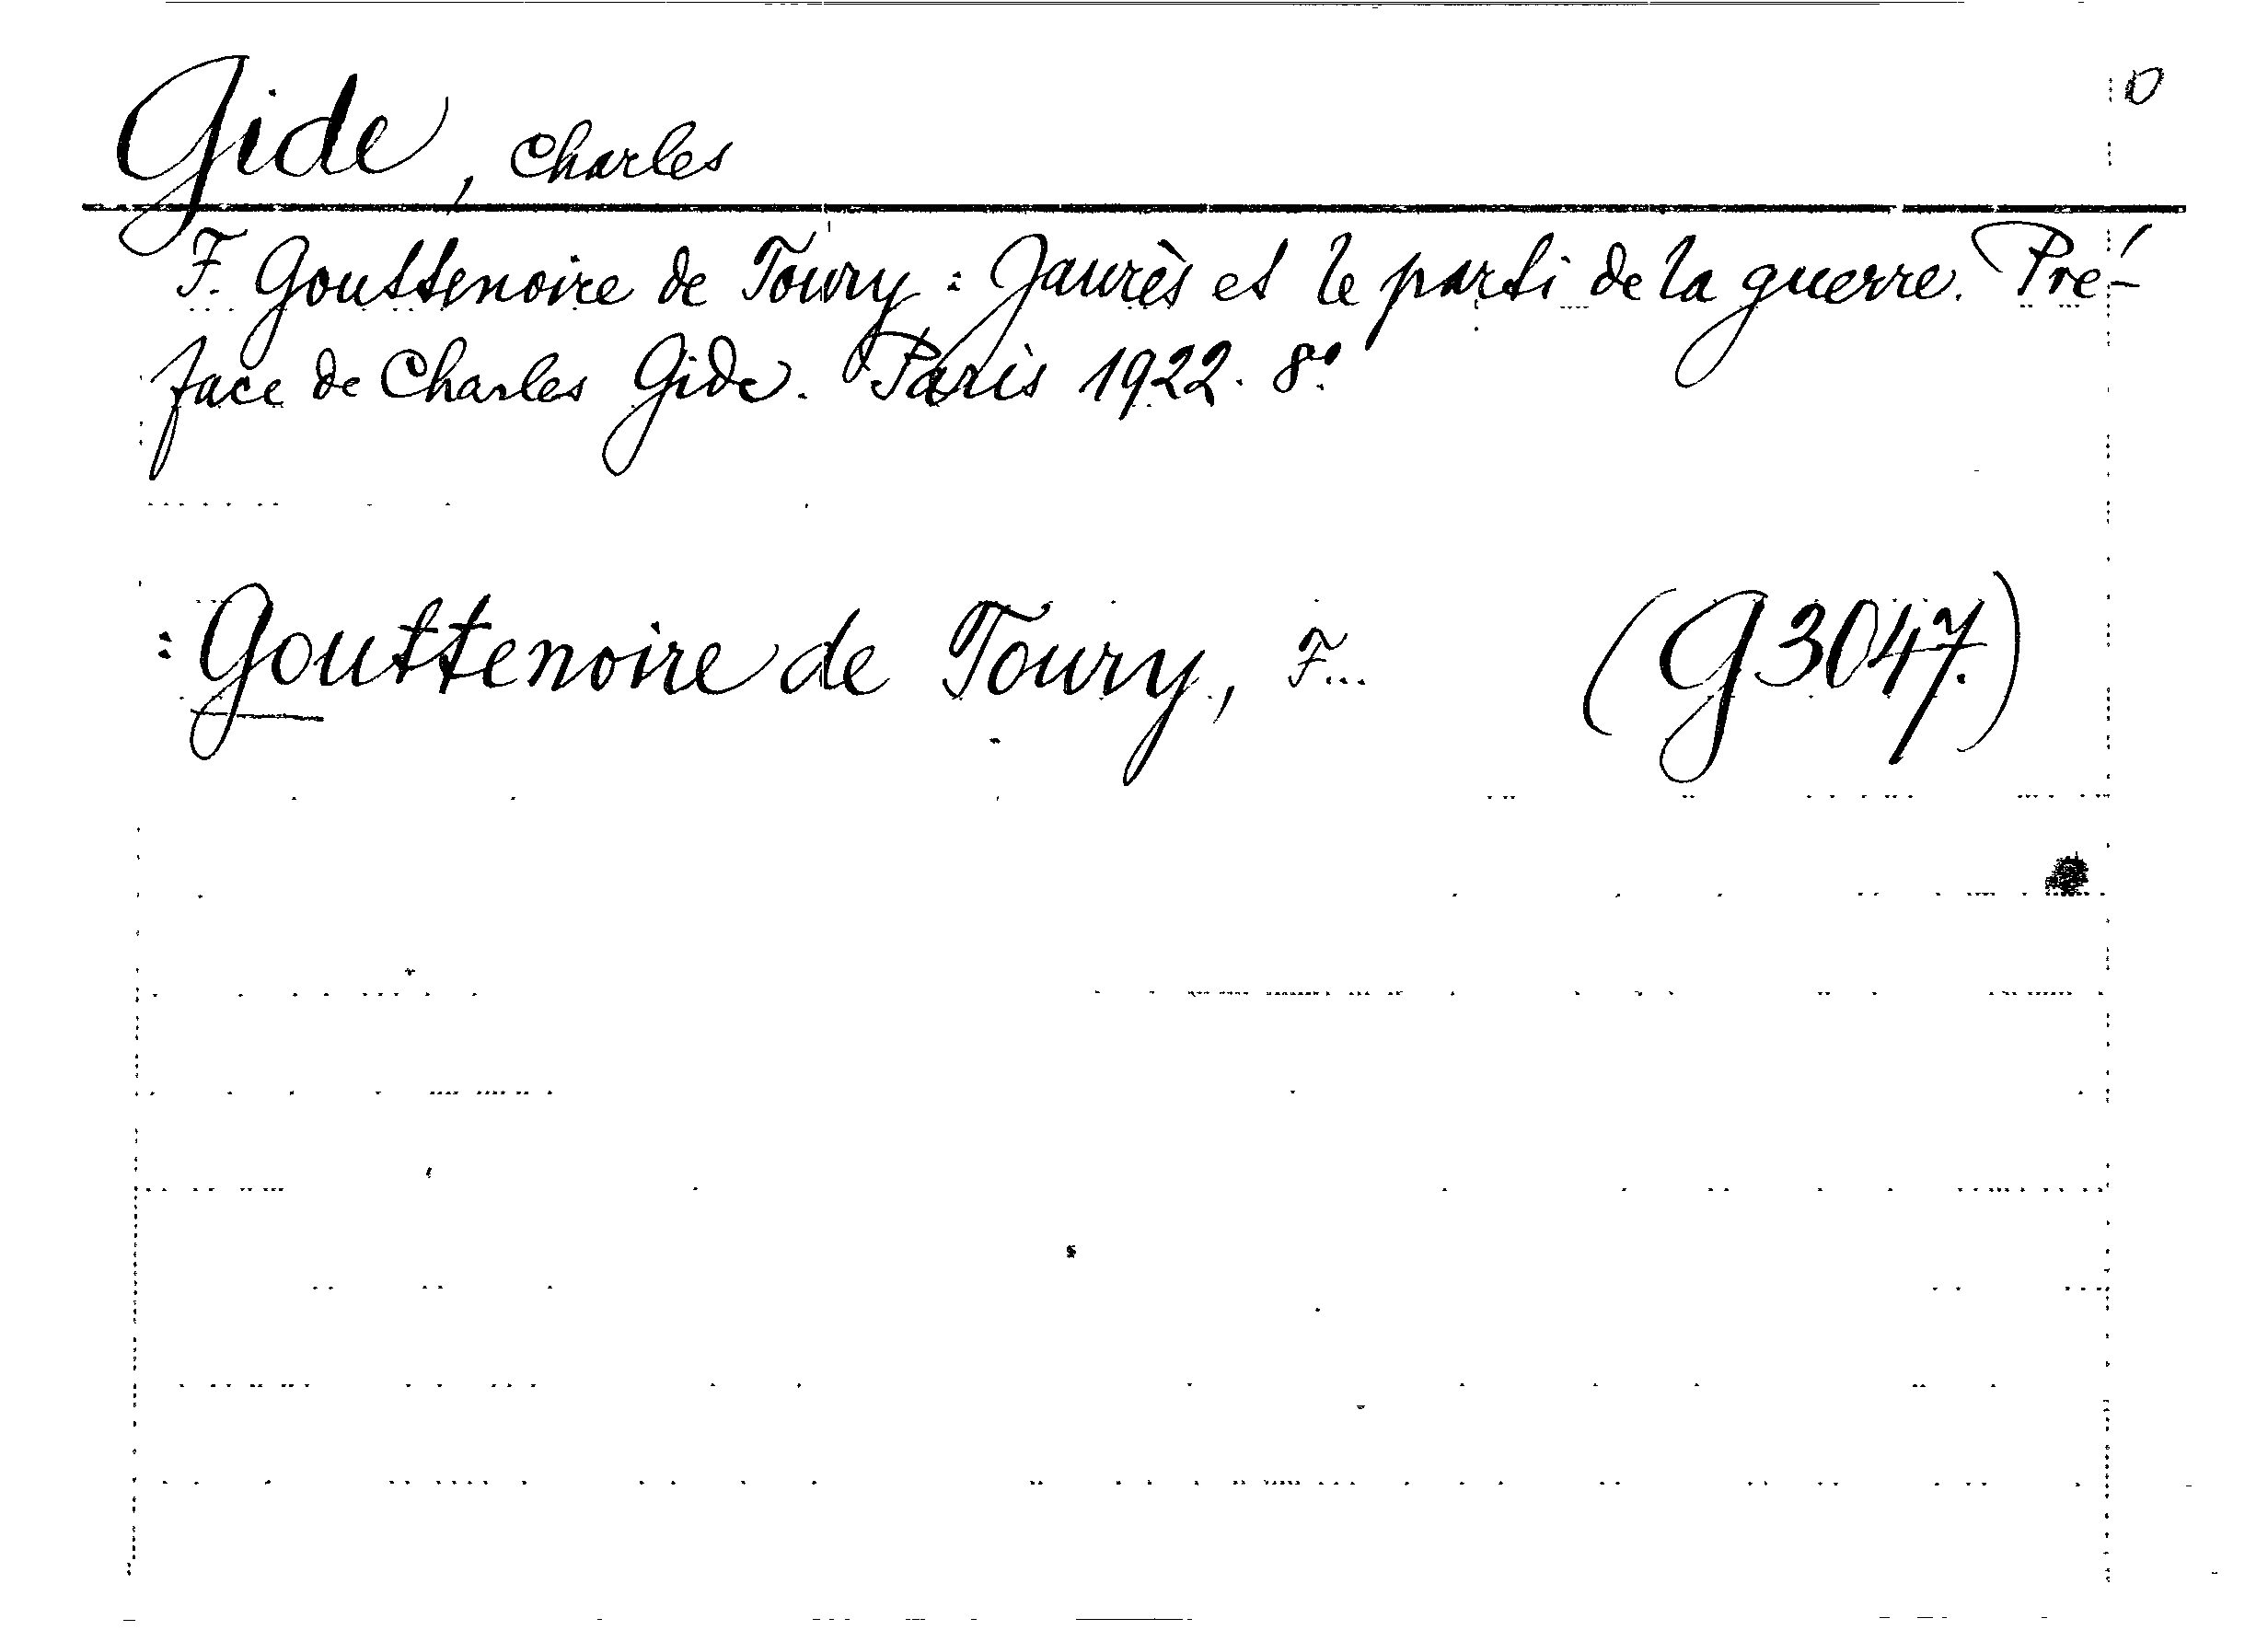 Gide, Charles
F. Gouttenoire de Toury : Jaurès et le parti de la guerre. Pré-
face de Charles Gide. Paris 1922. 8º.
: Gouttenoire de Toury, F... (G3047.)